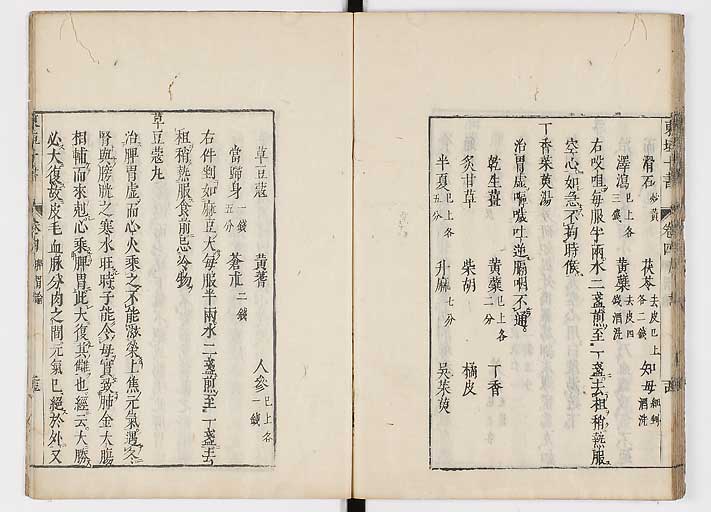 滑石炒黃 茯苓去皮已上各二錢 知母細剉酒洗
澤瀉已上各三錢 黃蘗去皮四錢酒洗
右㕮咀每服半兩水二盞煎至一盞去柤稍熱服
空心如急不拘時候
丁香茱萸湯
治胃虛嘔噦吐逆膈咽不通
乾生薑 黃蘗已上各二分 丁香
炙甘草 柴胡 橘皮
半夏已上各五分 升麻七分 吳茱萸
草豆蔻 黃蓍 人參已上各一錢
當歸身一錢五分 蒼朮二錢
右件剉如麻豆大每服半兩水二盞煎至一盞去
柤稍熱服食前忌冷物
草豆蔻丸
治脾胃虛而心火乘之不能滋榮上焦元氣遇冬
腎與膀胱之寒水旺時子能令母實致肺金大腸
相輔而來剋心乘脾胃此大復其讎也經云大勝
必大復故皮毛血脉分肉之間元氣已絕於外又